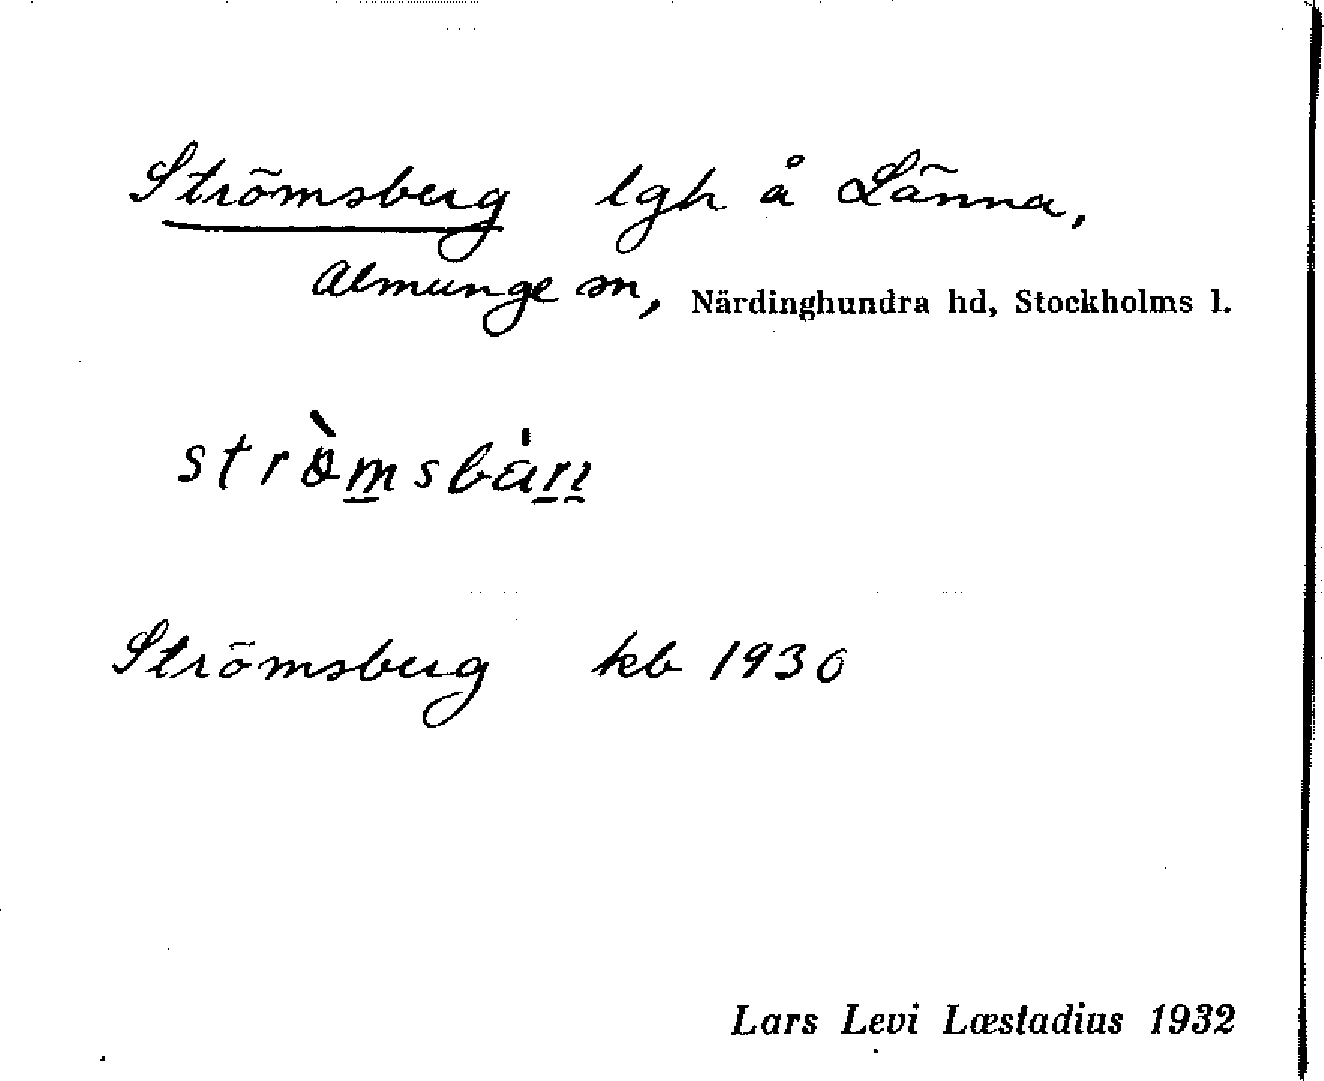 Strömsberg lgh å Länna,
Almunge sn, Närdinghundra hd, Stockholms l.
strömsbàrı
Strömsberg kb 1930
Lars Levi Læstadius 1932